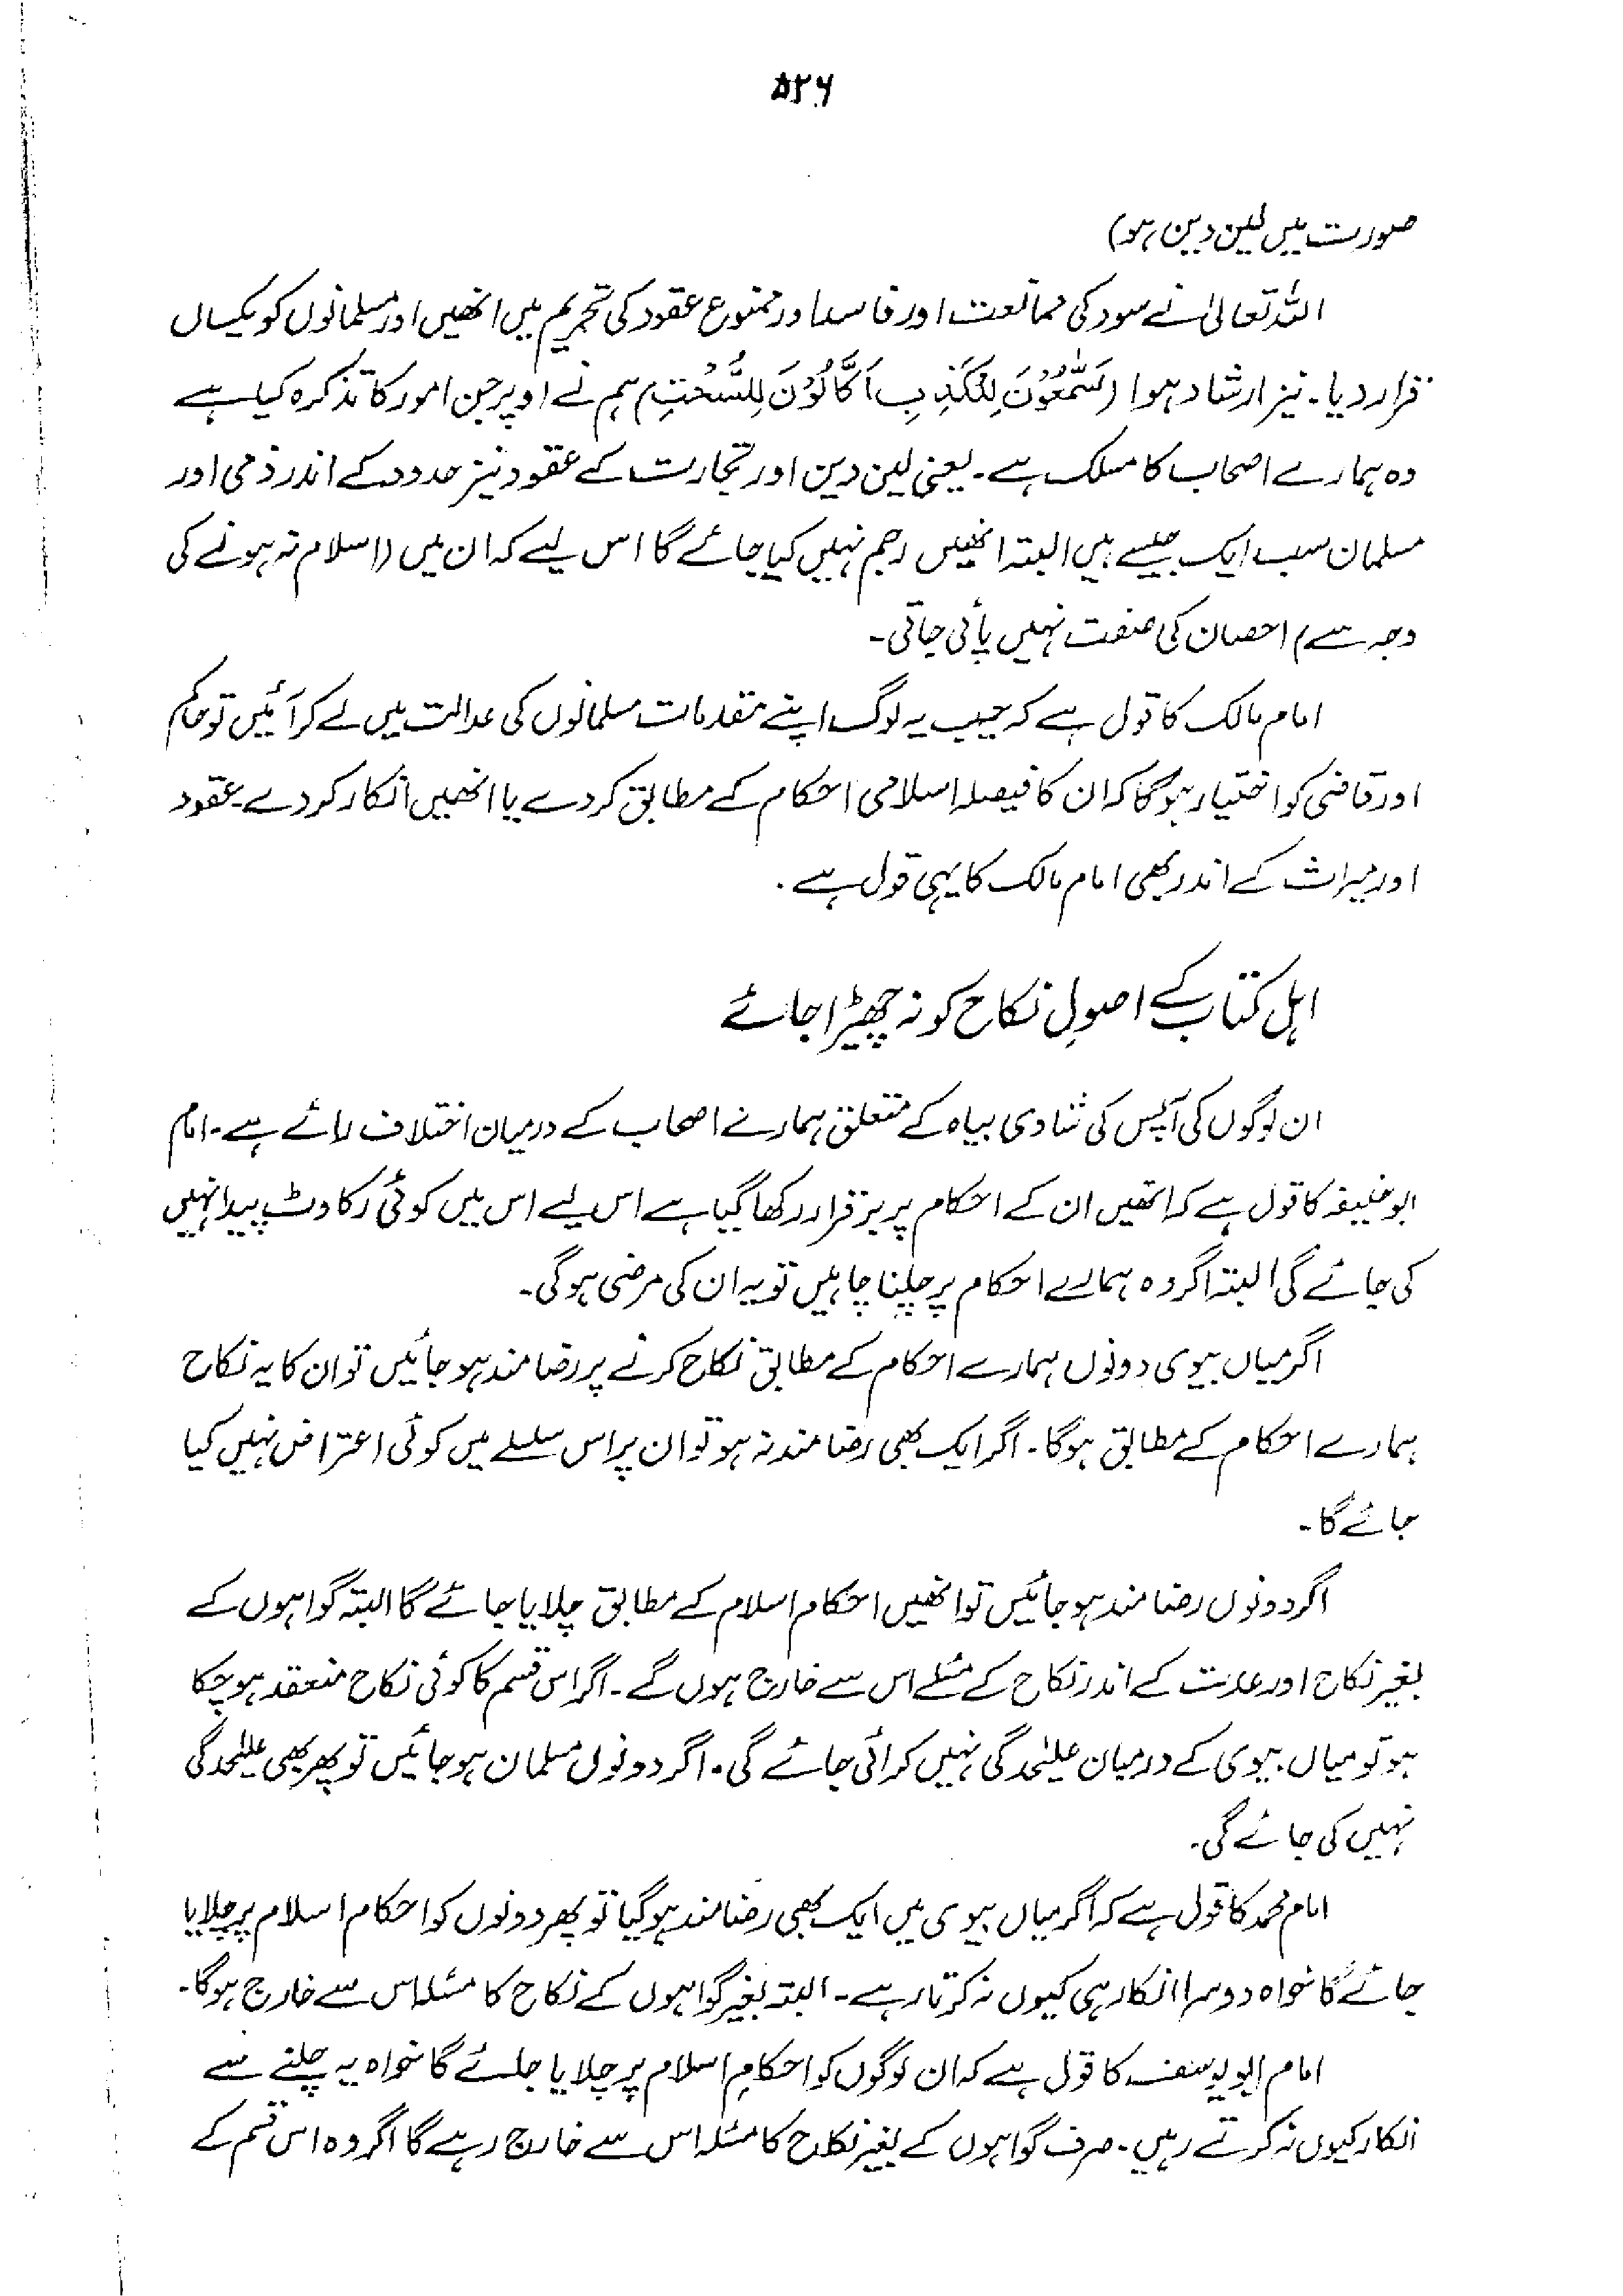 ۵۲۶
صورت میں لین دین ہو)
اللہ تعالیٰ نے سود کی ممانعت اور فاسد اور ممنوع عقود کی تحریم میں انھیں اور مسلمانوں کو یکساں
قرار دیا۔ نیز ارشاد ہوا (سَمّٰعُوْنَ لِلْكَذِبِ اَكَّالُوْنَ لِلسُّحْتِ) ہم نے اوپر جن امور کا تذکرہ کیا ہے
وہ ہمارے اصحاب کا مسلک ہے۔ یعنی لین دین اور تجارت کے عقود نیز حدود کے اندر ذمی اور
مسلمان سب ایک جیسے ہیں البتہ انھیں رجم نہیں کیا جائے گا اس لیے کہ ان میں (اسلام نہ ہونے کی
وجہ سے) احصان کی صفت نہیں پائی جاتی۔
امام مالک کا قول ہے کہ جب یہ لوگ اپنے مقدمات مسلمانوں کی عدالت میں لے کر آئیں تو حاکم
اور قاضی کو اختیار ہوگا کہ ان کا فیصلہ اسلامی احکام کے مطابق کر دے یا انھیں انکار کر دے۔ عقود
اور میراث کے اندر بھی امام مالک کا یہی قول ہے۔
اہل کتاب کے اصولِ نکاح کو نہ چھیڑا جائے
ان لوگوں کی آپس کی شادی بیاہ کے متعلق ہمارے اصحاب کے درمیان اختلاف رائے ہے۔ امام
ابو حنیفہ کا قول ہے کہ انھیں ان کے احکام پر برقرار رکھا گیا ہے اس لیے اس میں کوئی رکاوٹ پیدا نہیں
کی جائے گی البتہ اگر وہ ہمارے احکام پر چلنا چاہیں تو یہ ان کی مرضی ہوگی۔
اگر میاں بیوی دونوں ہمارے احکام کے مطابق نکاح کرنے پر رضامند ہو جائیں تو ان کا یہ نکاح
ہمارے احکام کے مطابق ہوگا۔ اگر ایک بھی رضامند نہ ہو تو ان پر اس سلسلے میں کوئی اعتراض نہیں کیا
جائے گا۔
اگر دونوں رضامند ہو جائیں تو انھیں احکام اسلام کے مطابق چلایا جائے گا البتہ گواہوں کے
بغیر نکاح اور عدت کے اندر نکاح کے مسئلے اس سے خارج ہوں گے۔ اگر اس قسم کا کوئی نکاح منعقد ہو چکا
ہو تو میاں بیوی کے درمیان علیٰحدگی نہیں کرائی جائے گی۔ اگر دونوں مسلمان ہو جائیں تو پھر بھی علیٰحدگی
نہیں کی جائے گی۔
امام محمد کا قول ہے کہ اگر میاں بیوی میں ایک بھی رضامند ہو گیا تو پھر دونوں کو احکام اسلام پر چلایا
جائے گا خواہ دوسرا انکار ہی کیوں نہ کرتا رہے۔ البتہ بغیر گواہوں کے نکاح کا مسئلہ اس سے خارج ہوگا۔
امام ابو یوسف کا قول ہے کہ ان لوگوں کو احکامِ اسلام پر چلایا جائے گا خواہ یہ چلنے سے
انکار کیوں نہ کرتے رہیں۔ صرف گواہوں کے بغیر نکاح کا مسئلہ اس سے خارج رہے گا اگر وہ اس قسم کے